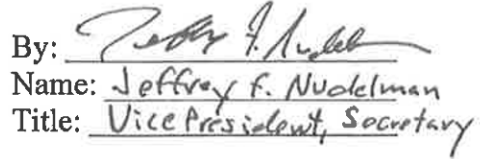 By: Jeffrey F. Nudelman
Name: Jeffrey F. Nudelman
Title: Vice President, Secretary